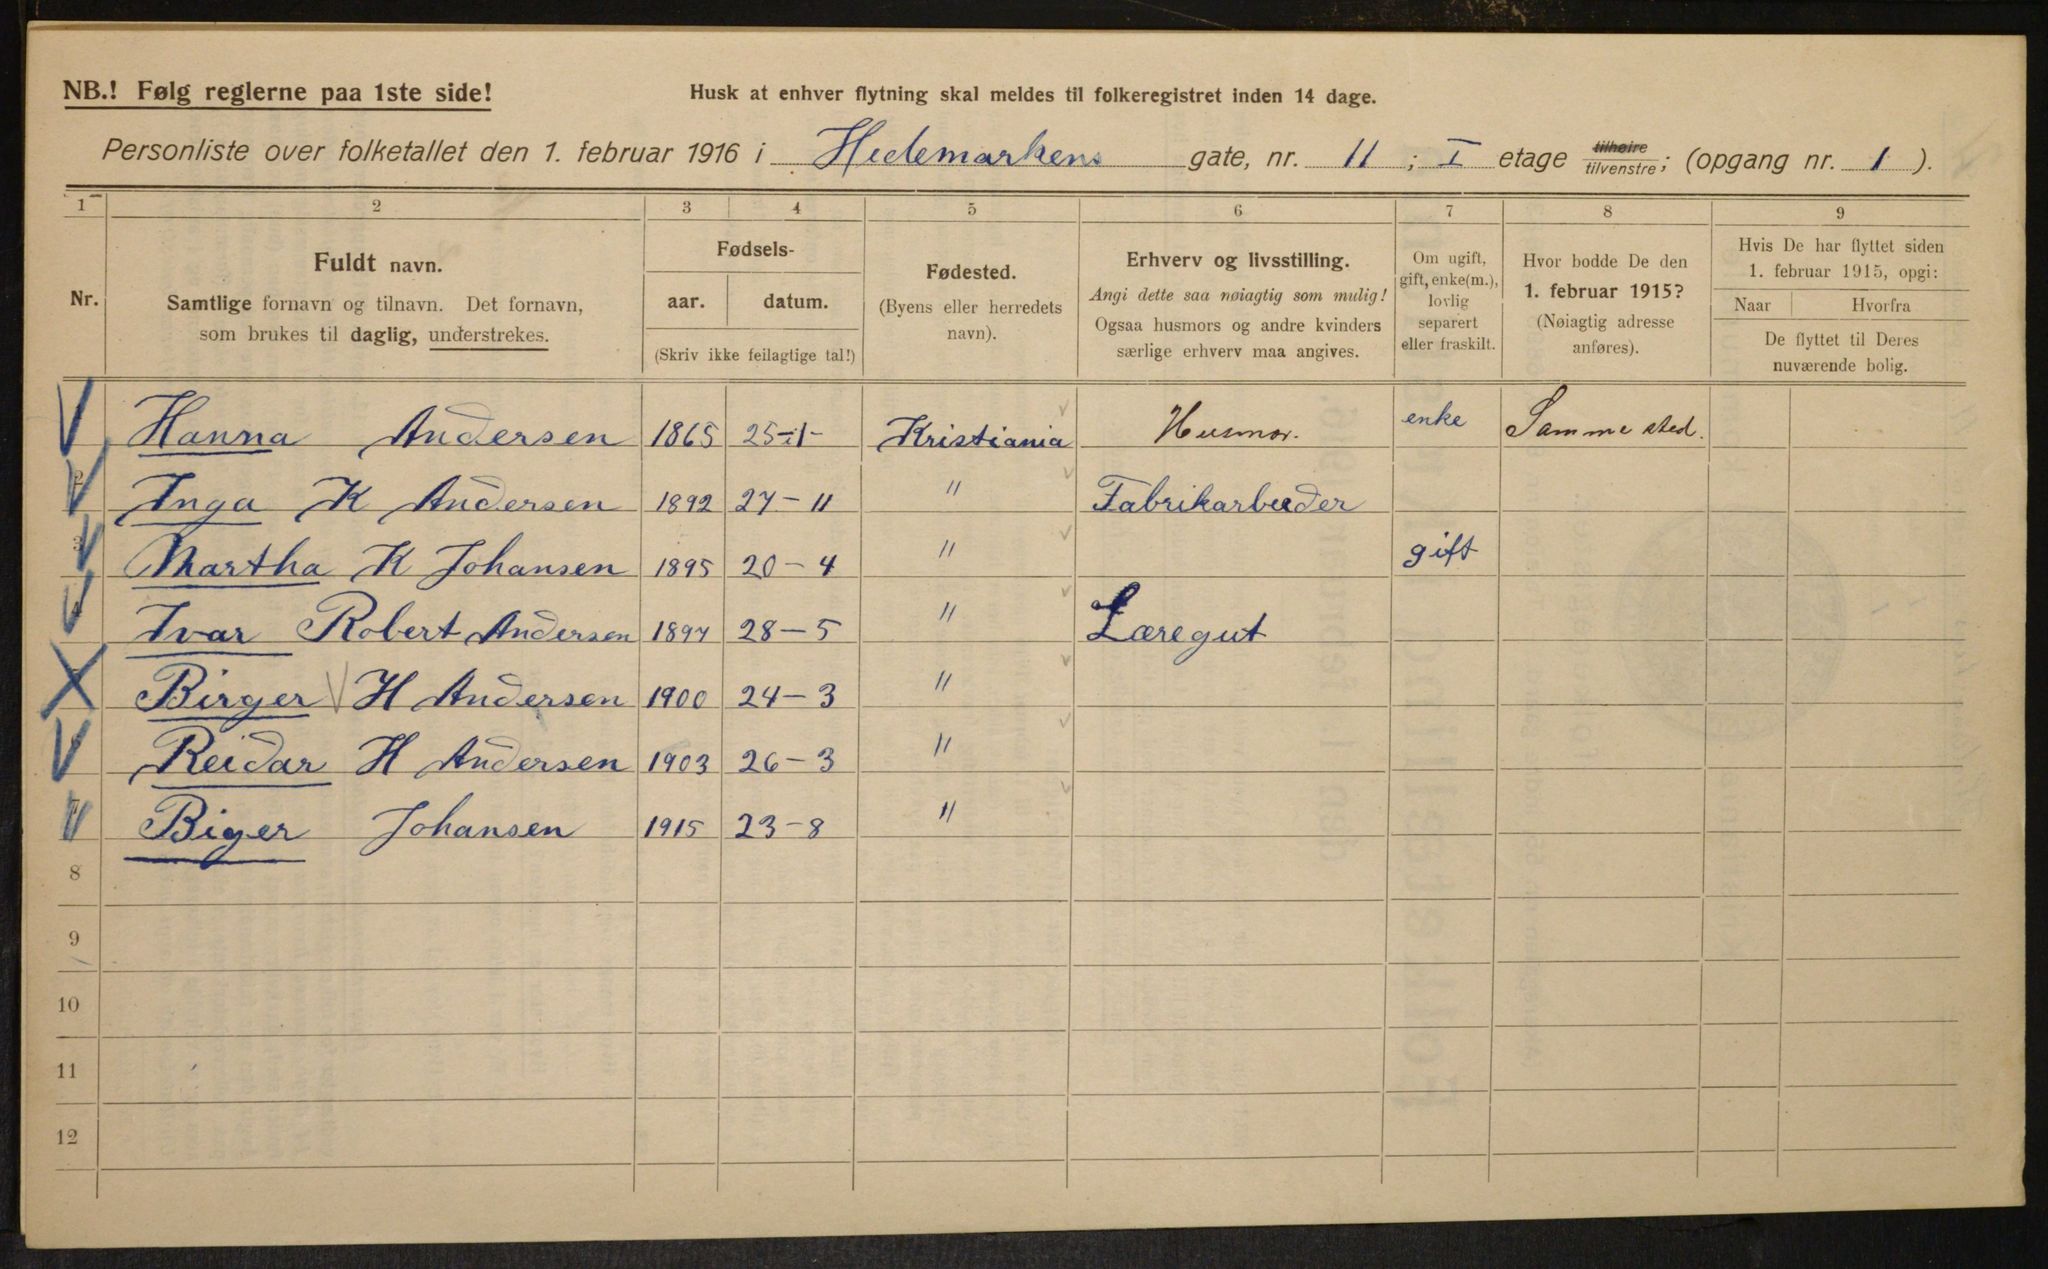 NB.! Følg reglerne paa 1ste side!
Husk at enhver flytning skal meldes til folkeregistret inden 14 dage.
Personliste over folketallet den 1. februar 1916 i Hedemarkens gate, nr. 11 ; I etage tilhøire/tilvenstre; (opgang nr. 1 ).
1 2 3 4 5 6 7 8 9
Nr.
Fuldt navn.
Samtlige fornavn og tilnavn. Det fornavn,
som brukes til daglig, understrekes.
Fødsels-
aar. datum.
(Skriv ikke feilagtige tal!)
Fødested.
(Byens eller herredets
navn).
Erhverv og livsstilling.
Angi dette saa nøiagtig som mulig!
Ogsaa husmors og andre kvinders
særlige erhverv maa angives.
Om ugift,
gift, enke(m.),
lovlig
separert
eller fraskilt.
Hvor bodde De den
1. februar 1915?
(Nøiagtig adresse
anføres).
Hvis De har flyttet siden
1. februar 1915, opgi:
Naar Hvorfra
De flyttet til Deres
nuværende bolig.
Hanna Andersen 1865 25-1- Kristiania Husmor. enke Samme sted.
2 Inga K Andersen 1892 27-11 " Fabrikarbeider
3 Martha K Johansen 1895 20-4 " gift
4 Ivar Robert Andersen 1897 28-5 " Læregut
Birger H Andersen 1900 24-3 "
Reidar H Andersen 1903 26-3 "
7 Biger Johansen 1915 23-8 "
8
9
10
11
12